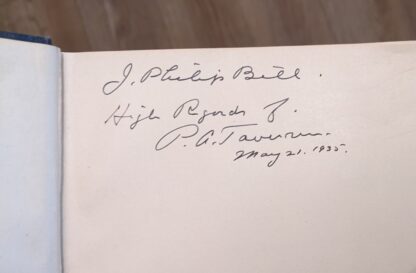 J. Philip Bill.
High Regards of.
P. A. Taverner.
May 21. 1935.